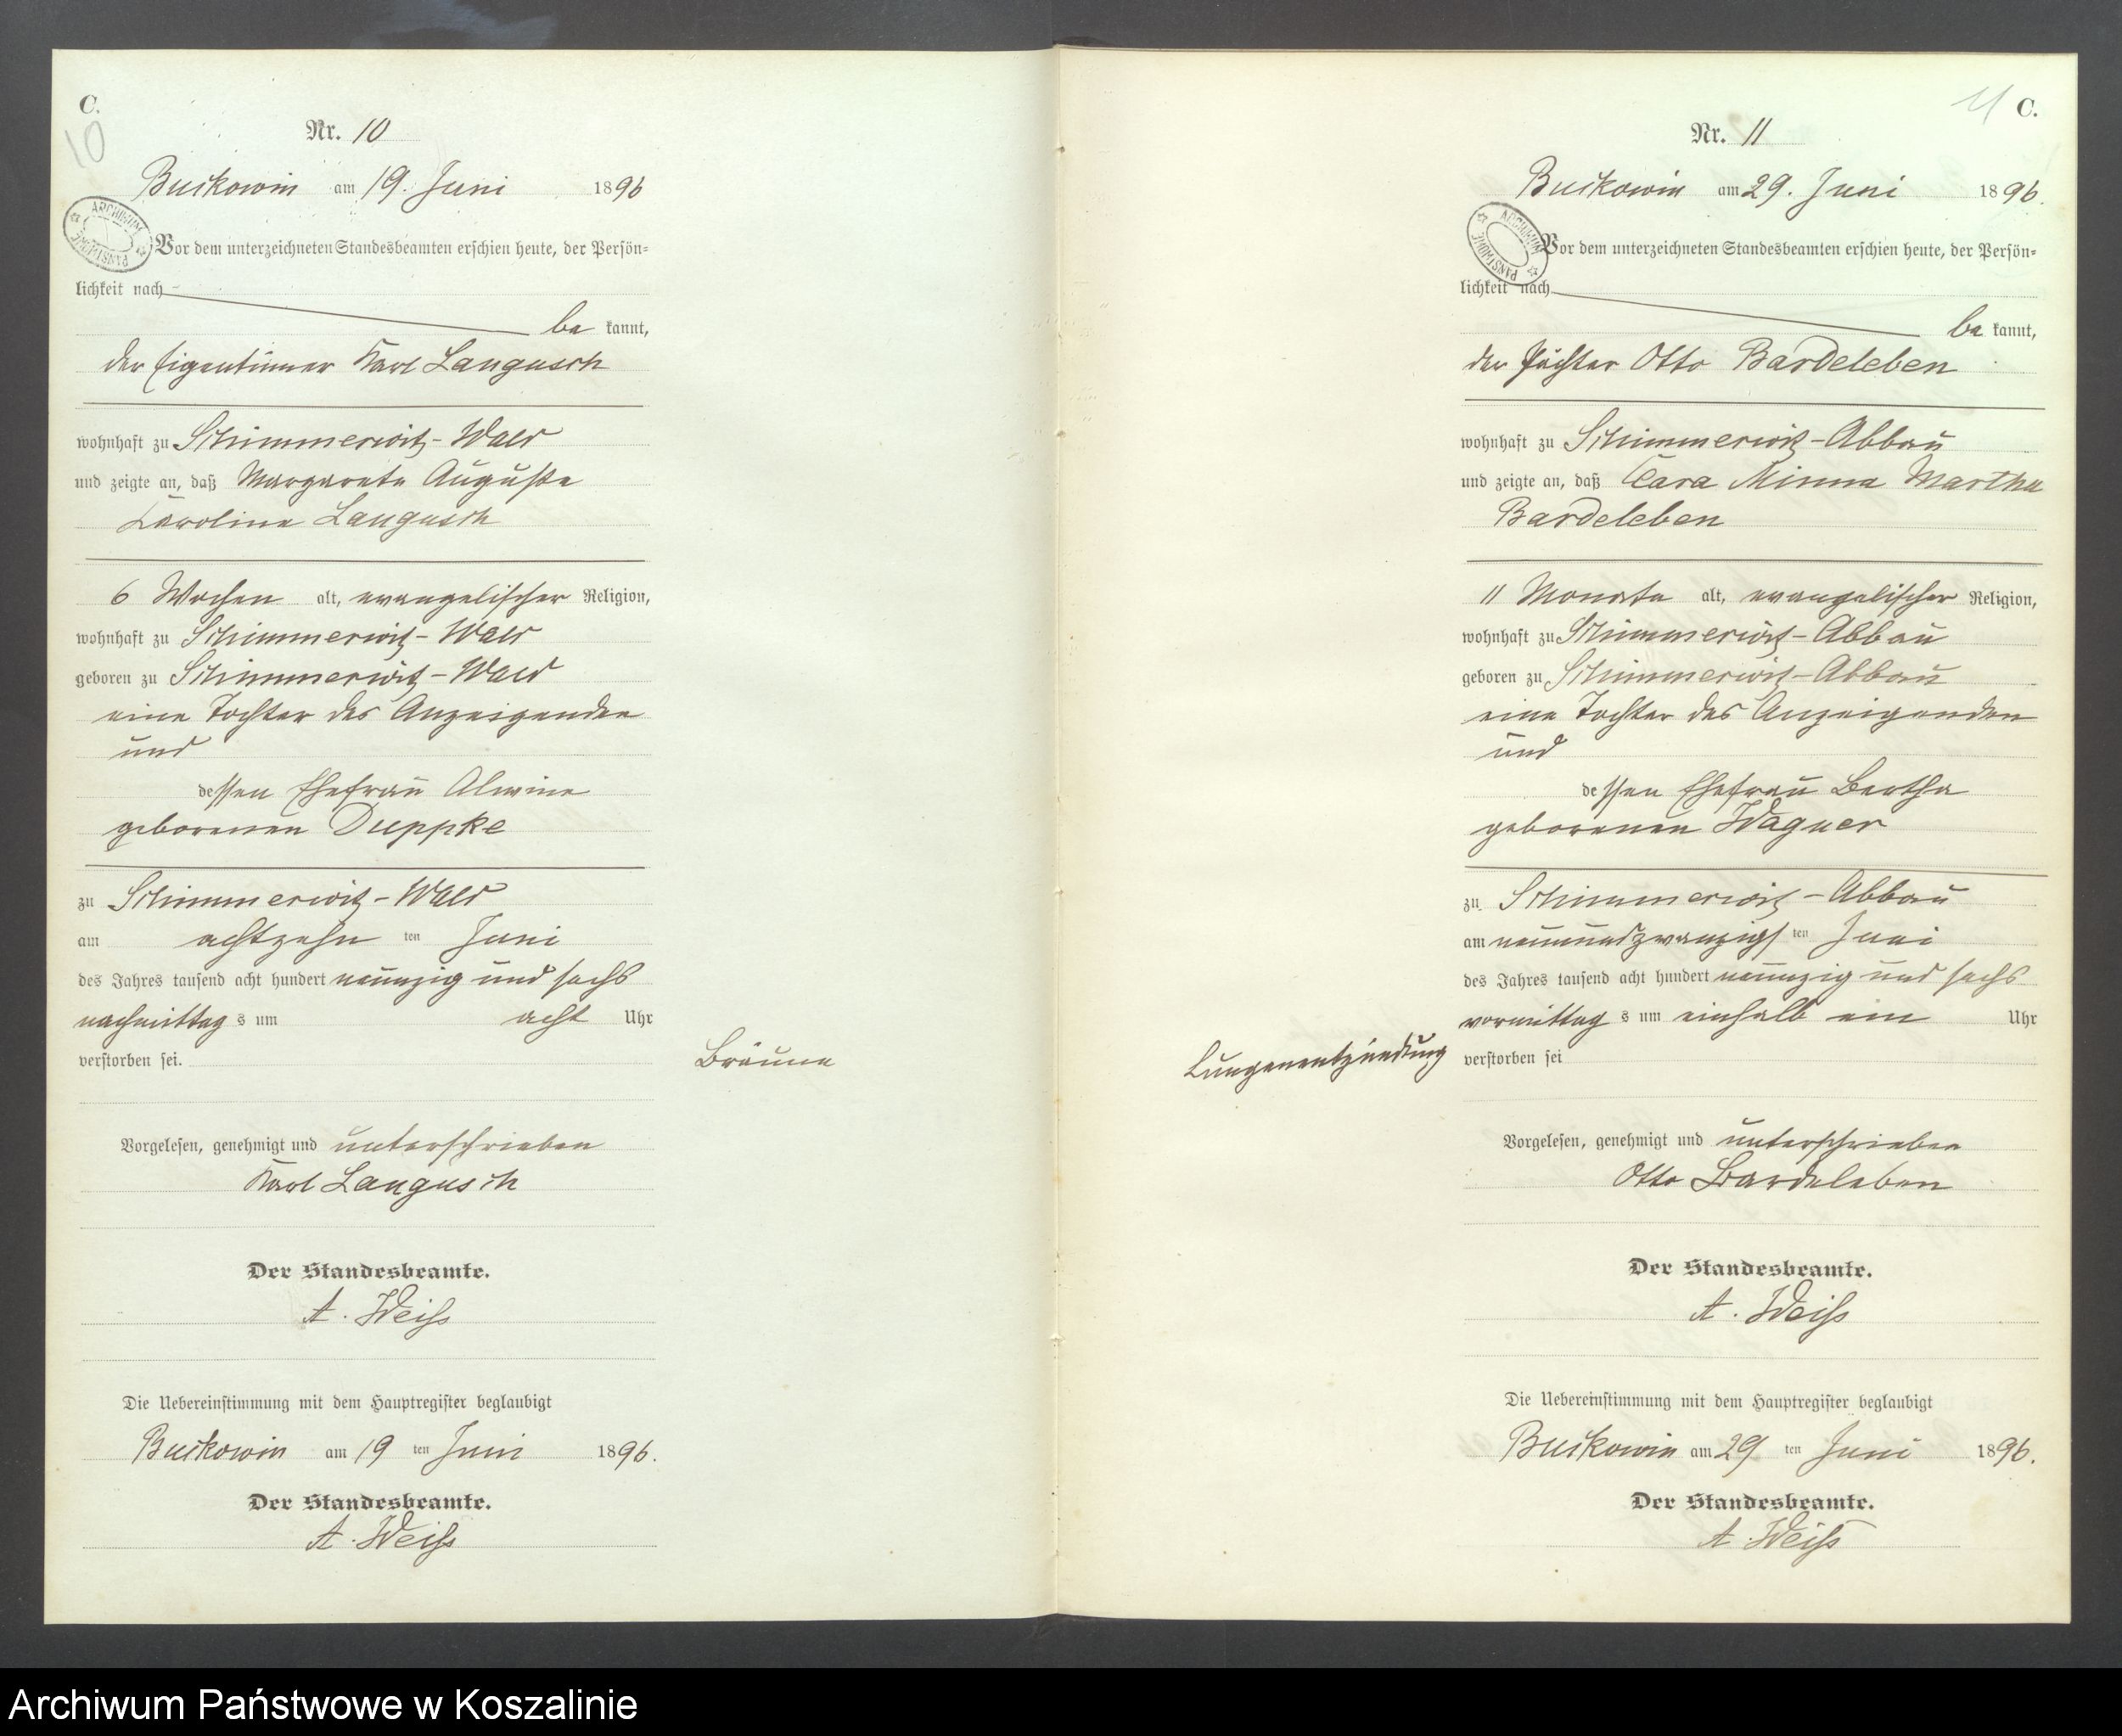 C.
10
Nr. 10
Buckowin am 19. Juni 1896
ARCHIWUM PAŃSTWOWE
Vor dem unterzeichneten Standesbeamten erschien heute, der Persön-
lichkeit nach
be kannt,
der Eigentümer Karl Langusch
wohnhaft zu Schimmerwitz-Wald
und zeigte an, daß Margarete Auguste
Karoline Langusch
6 Wochen alt, evangelischer Religion,
wohnhaft zu Schimmerwitz-Wald
geboren zu Schimmerwitz-Wald
eine Tochter des Anzeigenden
und
dessen Ehefrau Alwine
geborenen Duppke
zu Schimmerwitz-Wald
am achtzehn ten Juni
des Jahres tausend acht hundert neunzig und sechs
nachmittag s um acht Uhr
verstorben sei.
Bräune
Vorgelesen, genehmigt und unterschrieben
Karl Langusch
Der Standesbeamte.
A. Weiß
Die Uebereinstimmung mit dem Hauptregister beglaubigt
Buckowin am 19 ten Juni 1896.
Der Standesbeamte.
A. Weiß
11 C.
Nr. 11
Buckowin am 29. Juni 1896.
ARCHIWUM PAŃSTWOWE
Vor dem unterzeichneten Standesbeamten erschien heute, der Persön-
lichkeit nach
be kannt,
der Pächter Otto Bardeleben
wohnhaft zu Schimmerwitz-Abbau
und zeigte an, daß Minna Martha
Bardeleben
11 Monate alt, evangelischer Religion,
wohnhaft zu Schimmerwitz-Abbau
geboren zu Schimmerwitz-Abbau
eine Tochter des Anzeigenden
und
dessen Ehefrau Bertha
geborenen Wagner
zu Schimmerwitz-Abbau
am neunundzwanzigs ten Juni
des Jahres tausend acht hundert neunzig und sechs
vormittag s um einhalb ein Uhr
Lungenentzündung
verstorben sei
Vorgelesen, genehmigt und unterschrieben
Otto Bardeleben
Der Standesbeamte.
A. Weiß
Die Uebereinstimmung mit dem Hauptregister beglaubigt
Buckowin am 29 ten Juni 1896.
Der Standesbeamte.
A. Weiß
Archiwum Państwowe w Koszalinie